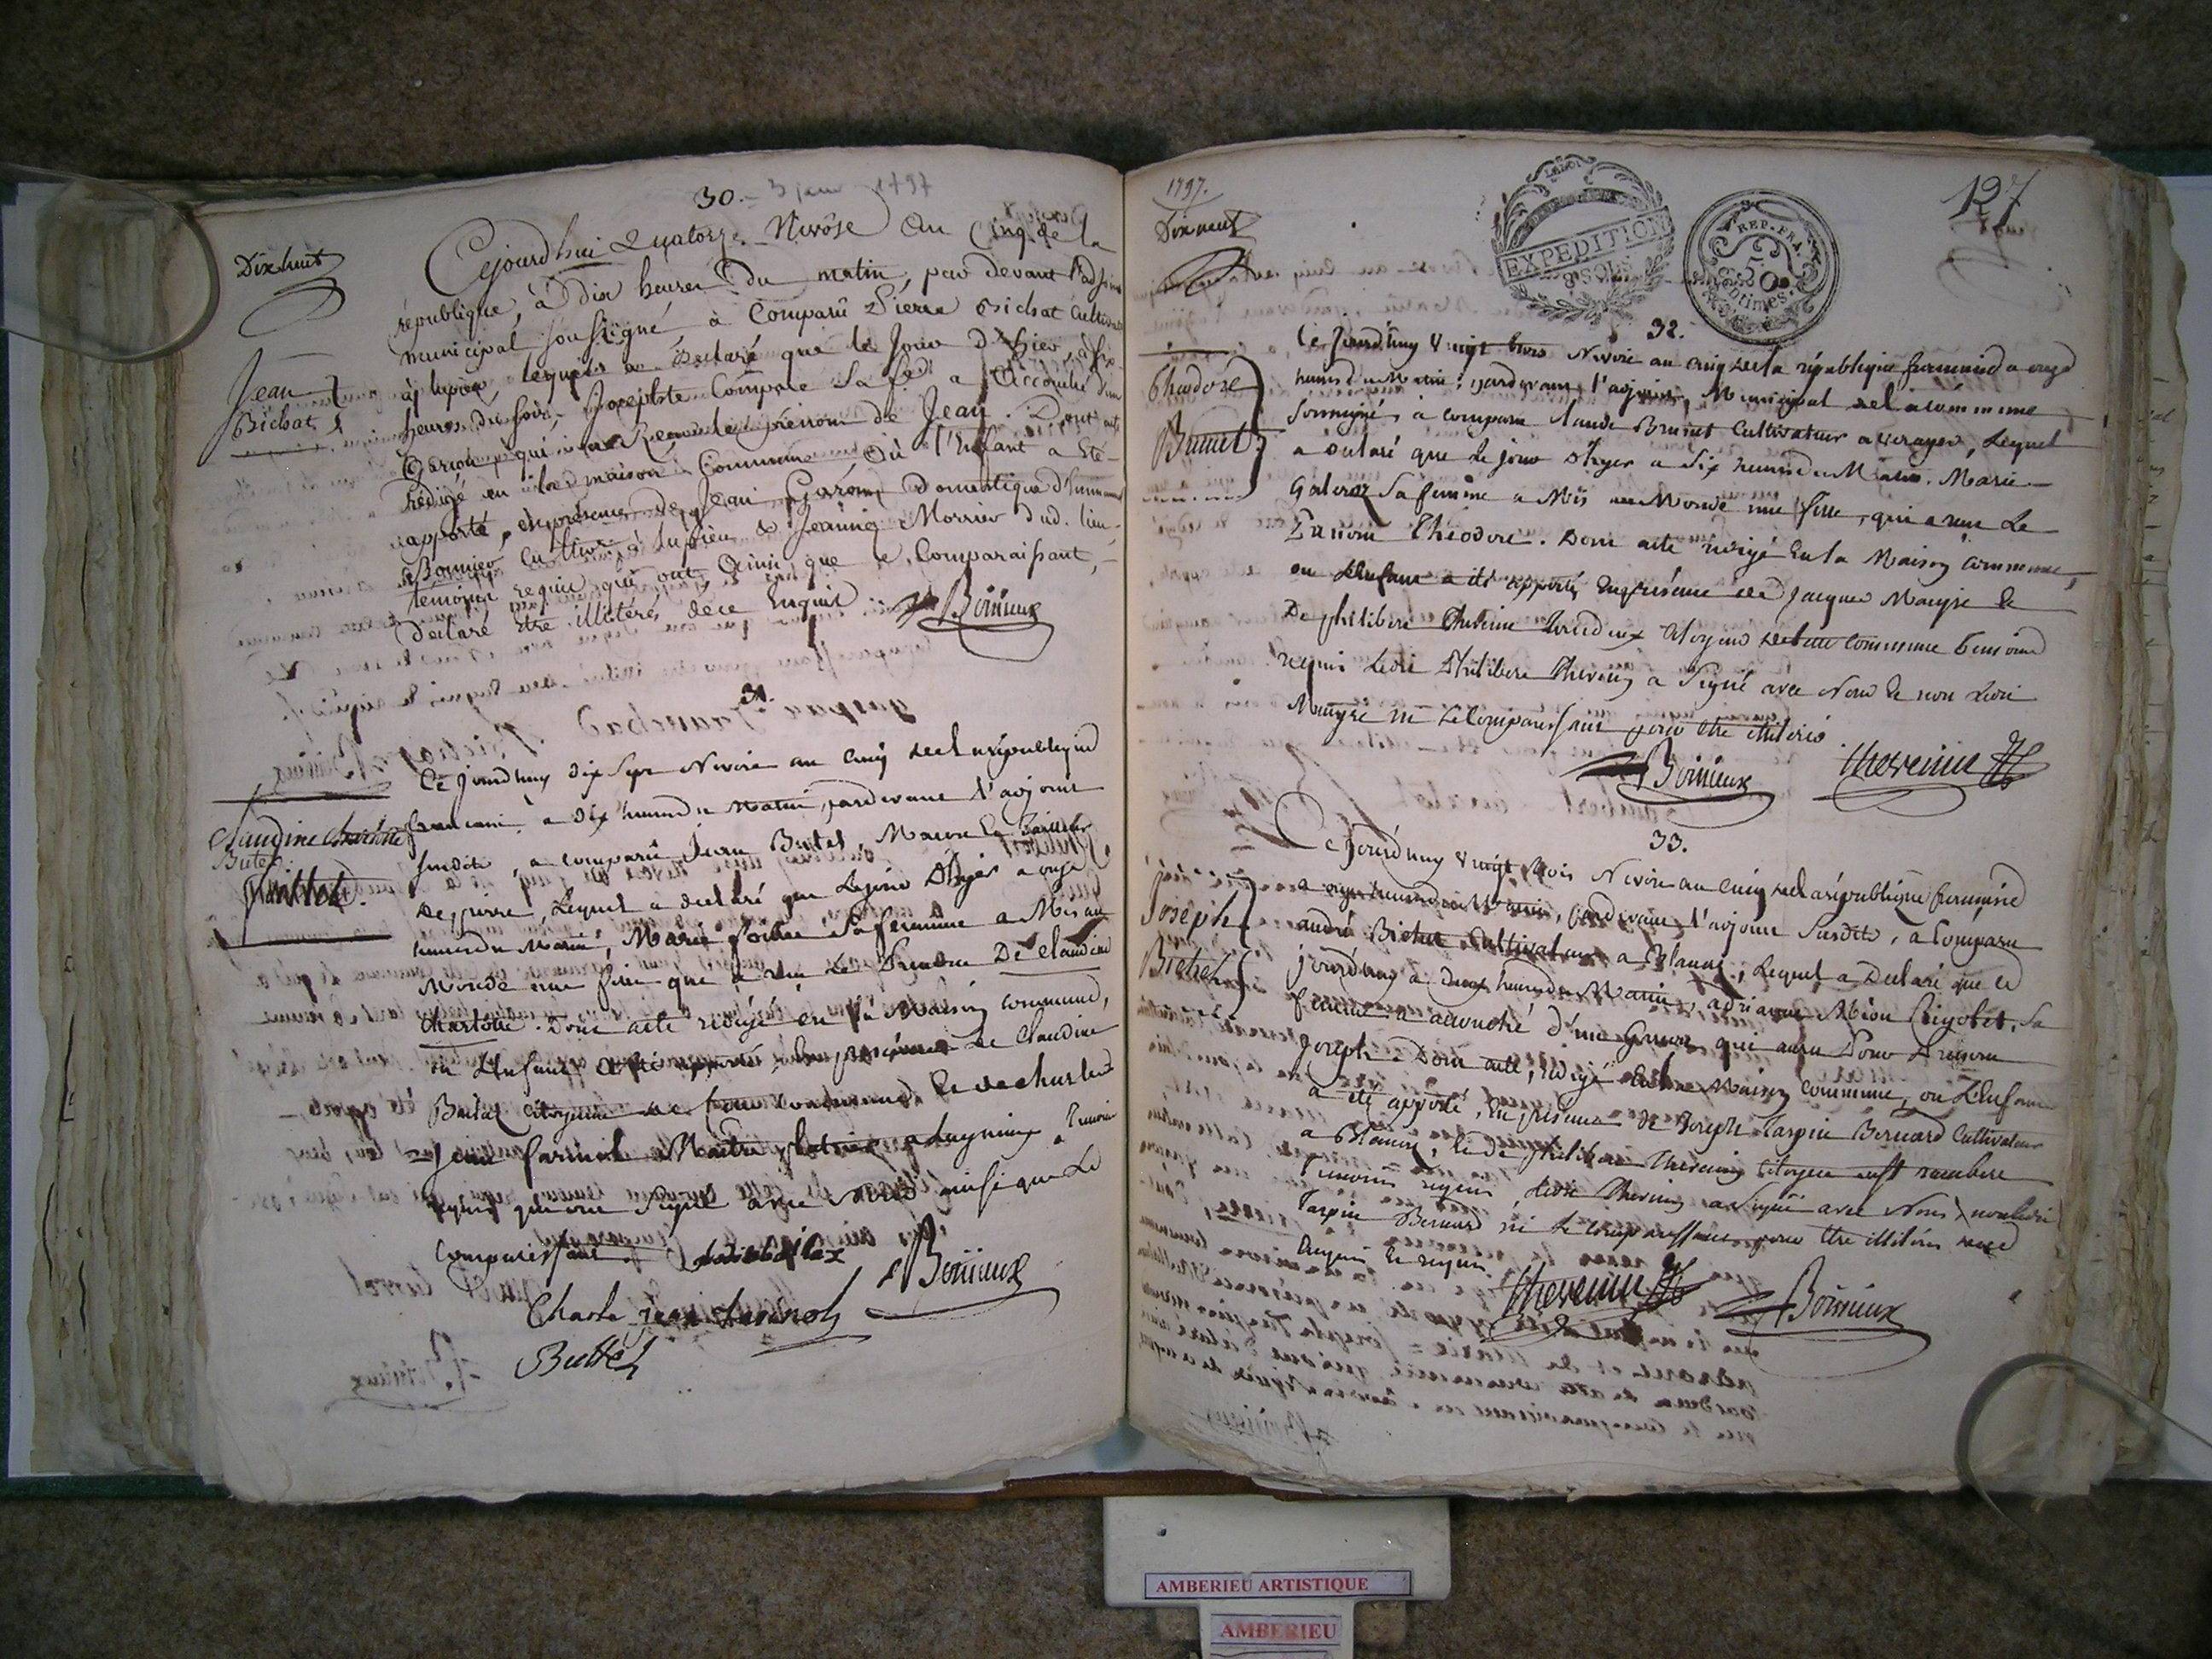 30. - 3 janv 1797
Dix huit
Cejourd'hui Quatorze Nivôse An Cinq de la
république, à Dix heures du matin, par devant l'adjoint
municipal soussigné à Comparû Pierre Bichat Cultivateur
Jean
Bichat
à lupieu, lequel a déclaré que le Jour d'hier, à six
heures du soir, Josephte Compare sa fe. a Accouché d'un
Garçon, qui a reçu le prénom de Jean. Dont acte
rédigé en la maison Commune Où l'Enfant a Eté
apporté, en présence de Jean Domestique d'
Bonnier cultivr. à lupieu & Jeannie Morrier dud. lieu
témoins requis qui ont, Ainsi que le Comparaissant,
déclaré être illitérés, de ce Enquis
Bonieux
31.
Ce jourdhuy dix Sept Nivose an Cinq de la république
Claudine Charlotte
Butet
francaise, a dix heures du matin, pardevant l'adjoint
susdit, a comparû Jean Butet, Macon Et Tailleur
De pierre, Lequel a declaré que Lejour d'hyer a onze
heures du Matin, Marie sa femme a Mis au
Monde une fille que a reçu Le Prenom De Claudine
Charlotte. Dont acte rédigé en la Maison commune,
ou L'Enfant a été apporté, En présence de Claudine
Citoyenne de cette commune Et de charles
Jean Maitre a Lagnieu Temoins
requis qui ont Signé avec Nous ainsi que Le
Comparaissant.
Bonieux
Charle jean
Buttet
1797.
Dix neuf
EXPEDITION
8 SOLS
REP. FRA.
50
Centimes
127
32.
Ce Jourdhuy Vingt trois Nivose an cinq de la république francaise a onze
Théodore
Brunet
heures du Matin, pardevant l'adjoint Municipal de la commune
Soussigné, à comparu Claude Brunet Cultivateur a Lequel
a declaré que le jour d'hyer a Six heures du Matin Marie
sa femme a Mis au Monde une fille, qui a reçu Le
Prenom Théodore. Dont acte rédigé En la Maison Commune,
ou L'Enfant a été apporté, En présence de Jacques Maugre Et
De philibert Thevenin Tous deux Citoyens de cette Commune Temoins
requis Ledit Philibert Thevenin a Signé avec Nous Et non Ledit
Maugre ni Le Comparaissant pour être illitérés
Bonieux
thevenin
33.
Ce Jourd'huy Vingt trois Nivose an Cinq de la république francaise
Joseph
Bichat
a onze heures du Matin, pardevant l'adjoint Susdit, a Comparu
andré Bichat Cultivateur a Blanaz, Lequel a Declaré que ce
jourdhuy à deux heures du Matin, adrianne Mion Chigolet, Sa
femme a accouché d'un Garcon que aura Pour Prenom
Joseph. Dont acte, rédigé En la Maison Commune, ou L'Enfant
a été apporté, En présence de Joseph Tarpin Bernard Cultivateur
a Blanaz, Et de philibert Thevenin Citoyen
Temoins requis, Ledit Thevenin a Signé avec Nous, non Ledit
Tarpin Bernard ni Le Comparaissant pour être illitérés
Enquis Et requis.
thevenin
Bonieux
AMBERIEU ARTISTIQUE
AMBERIEU